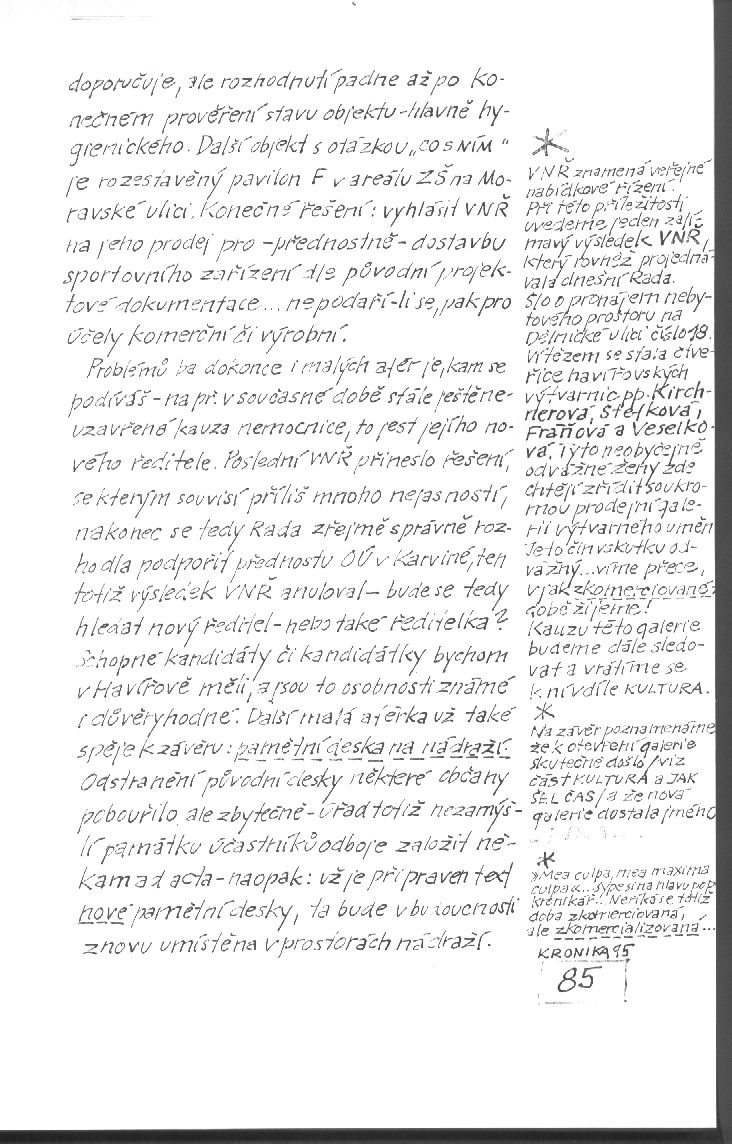 doporučuje, ale rozhodnutí padne až po ko-
nečném prověření stavu objektu-hlavně hy-
gienického. Další objekt s otázkou „CO S NÍM"
je rozestavěný pavilon F v areálu ZŠ na Mo-
ravské ulici. Konečné řešení: vyhlásit VNŘ
na jeho prodej pro -přednostně- dostavbu
sportovního zařízení dle původní projek-
tové dokumentace... nepodaří-li se, pak pro
účely komerční či výrobní.
Problémů ba dokonce i malých afér je, kam se
podíváš-na př. v současné době stále ještě ne-
uzavřená kauza nemocnice, to jest jejího no-
vého ředitele. Poslední VNŘ přineslo řešení,
se kterým souvisí příliš mnoho nejasností,
nakonec se tedy Rada zřejmě správně roz-
hodla podpořit přednostu OÚ v Karviné, ten
totiž výsledek VNŘ anuloval- bude se tedy
hledat nový ředitel-nebo také ředitelka?
Schopné kandidáty či kandidátky bychom
v Havířově měli, a jsou to osobnosti známé
i důvěryhodné. Další malá aférka už také
spěje k závěru: pamětní deska na nádraží.
Odstranění původní desky některé občany
pobouřilo, ale zbytečně-úřad totiž nezamýš-
lí památku účastníků odboje založit ně-
kam ad acta-naopak: už je připraven text
nové pamětní desky, ta bude v budoucnosti
znovu umístěna v prostorách nádraží.
*
VNŘ znamená veřejné
nabídkové řízení.
Při této příležitosti
uvedeme jeden zají-
mavý výsledek VNŘ,
který rovněž projedná-
vala dnešní Rada.
Šlo o pronájem neby-
tového prostoru na
Dělnické ulici číslo 18.
Vítězem se stala čtve-
řice havířovských
výtvarnic pp. Kirch-
nerová, Stejková,
Fraňová a Veselko-
vá. Tyto neobyčejně
odvážné ženy zde
chtějí zřídit soukro-
mou prodejní gale-
rii výtvarného umění
Je to čin vskutku od-
vážný...víme přece,
v jak zkomerciované
době žijeme!
Kauzu této galerie
budeme dále sledo-
vat a vrátíme se
k ní v díle KULTURA.
*
Na závěr poznamenáme
že k otevření galerie
skutečně došlo /viz
část KULTURA a JAK
ŠEL ČAS/ a že nová
galerie dostala jméno
*
»Mea culpa, mea maxima
culpa«... sype si na hlavu pop.
kronikář... Neříká se totiž
doba zkomerciovaná,
ale zkomercializovaná...
KRONIKA 95
85